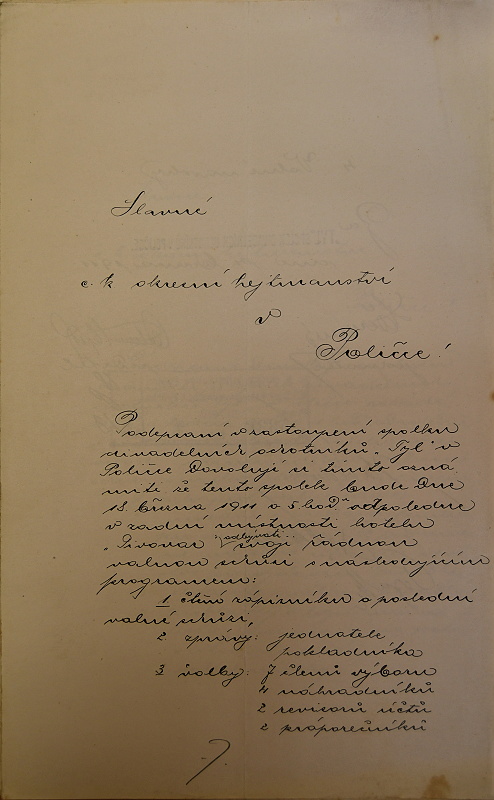 Slavné
c. k. okresní hejtmanství
v
Poličce!
Podepsaní v zastoupení spolku
divadelních ochotníků „Tyl“ v
Poličce dovolují si tímto ozná
miti že tento spolek bude dne
18. června 1911 o 5 hod. odpoledne
v zadní místnosti hotelu
„Pivovar“ odbývati svoji řádnou
valnou schůzi s následujícím
programem:
1. čtení zápisníku o poslední
valné schůzi,
2. zprávy: jednatele
pokladníka
3. volby: 7 členů výboru
4 náhradníků
2 revisorů účtů
2 praporečníků